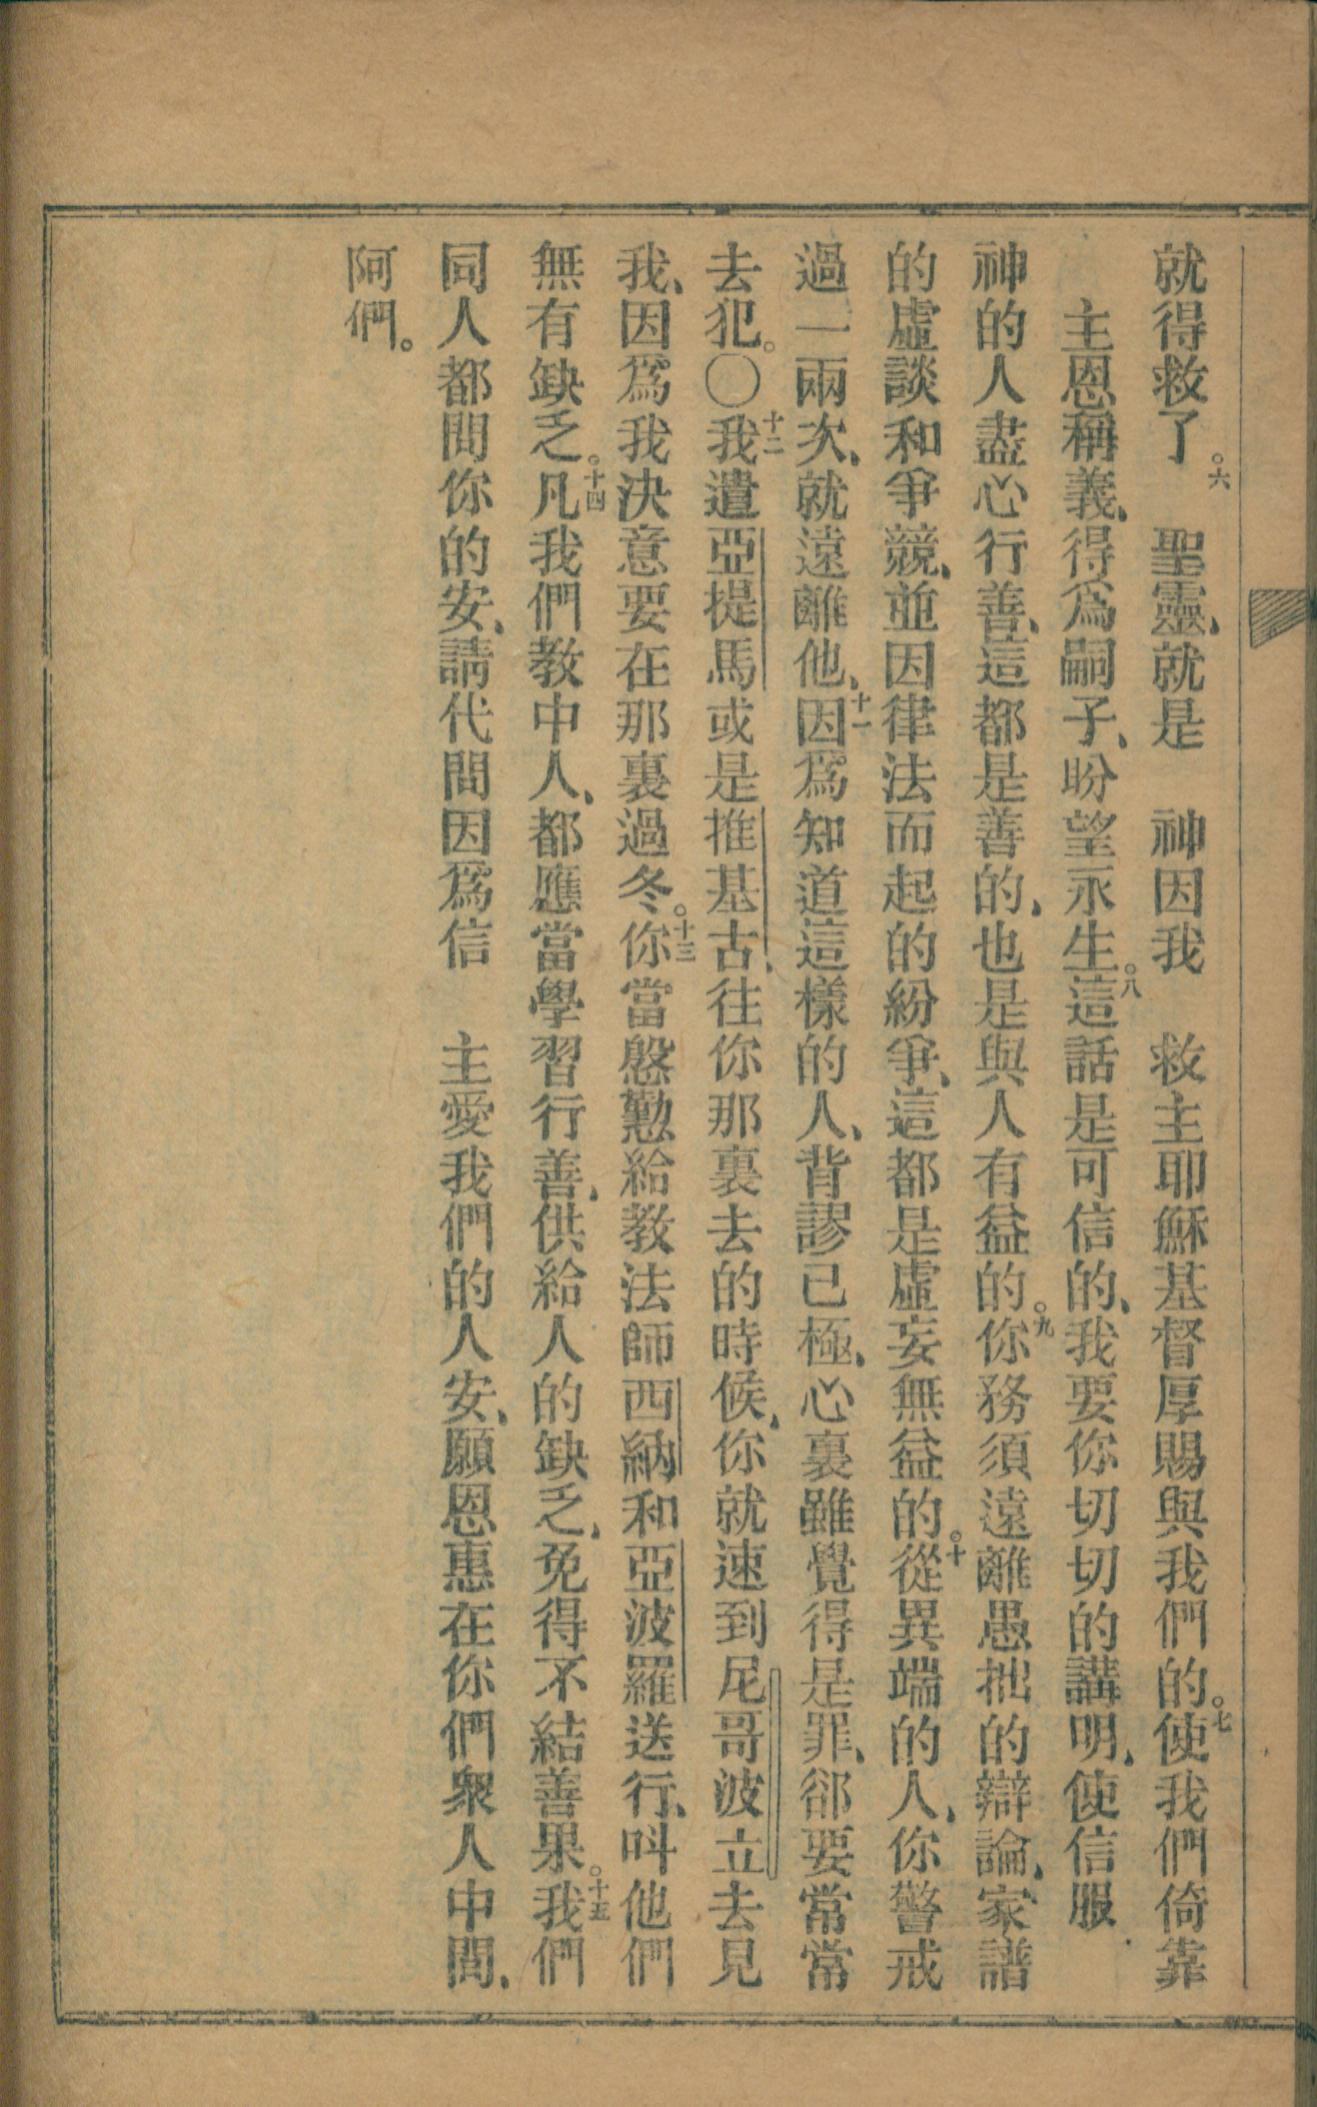 就得救了。六　聖靈、就是　神因我　救主耶穌基督厚賜與我們的。七使我們倚靠
　主恩稱義、得爲嗣子、盼望永生。八這話是可信的、我要你切切的講明、使信服
神的人盡心行善、這都是善的、也是與人有益的。九你務須遠離愚拙的辯論、家譜
的虛談和爭競、並因律法而起的紛爭、這都是虛妄無益的。十從異端的人、你警戒
過一兩次、就遠離他、十一因爲知道這樣的人、背謬已極、心裏雖覺得是罪、郤要常常
去犯。〇十二我遣亞提馬或是推基古、往你那裏去的時候、你就速到尼哥波立去見
我、因爲我決意要在那裏過冬。十三你當慇懃給教法師西納和亞波羅送行、呌他們
無有缺乏。十四凡我們教中人、都應當學習行善、供給人的缺乏、免得不結善果。十五我們
同人都問你的安、請代問因爲信　主愛我們的人安、願恩惠在你們衆人中間、
阿們。